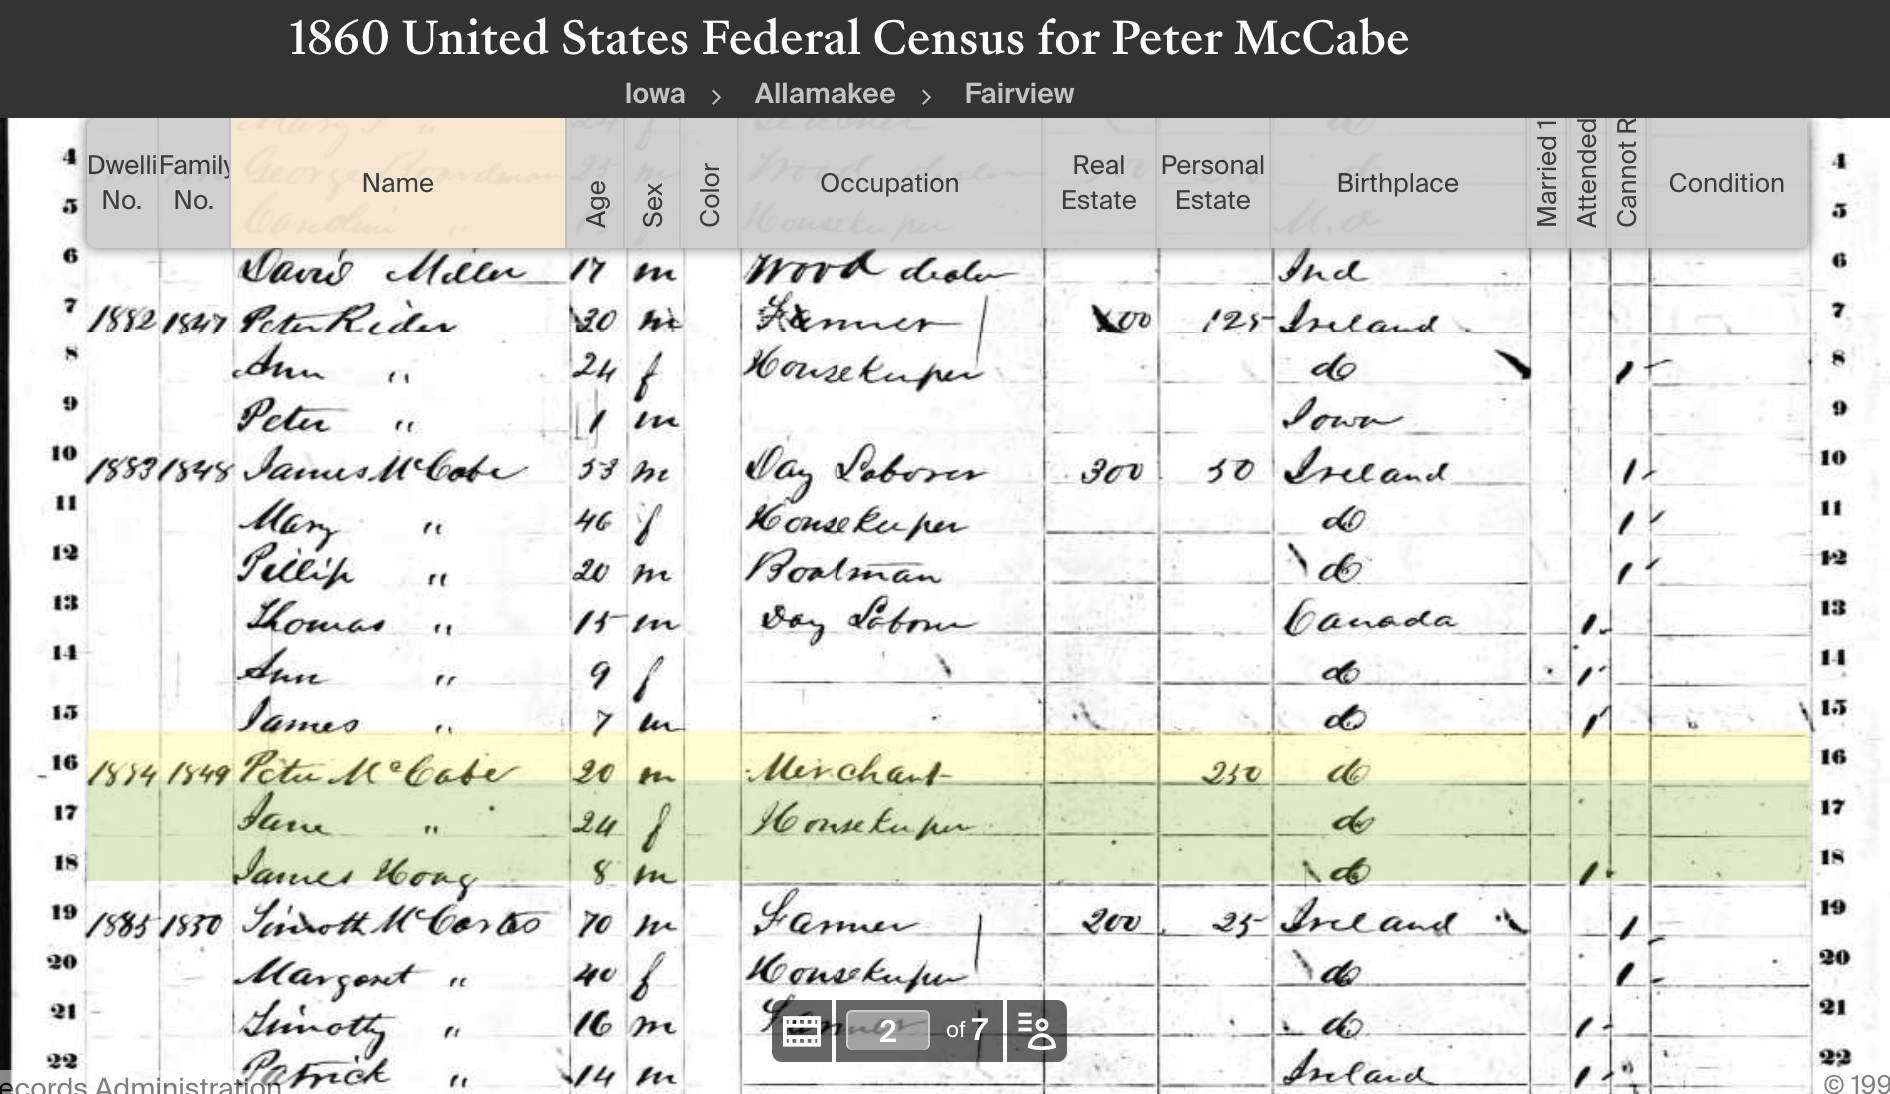 1860 United States Federal Census for Peter McCabe
Iowa > Allamakee > Fairview
Dwelli No. Family No. Name Age Sex Color Occupation Real Estate Personal Estate Birthplace Married 1 Attended Cannot R Condition
4 4
5 5
6 David Miller 17 m Wood dealer Ind 6
7 1882 1847 Peter Rider 30 m Farmer 125 Ireland 7
8 Ann " 24 f Housekeeper do 1 8
9 Peter " 1 m Iowa 9
10 1883 1848 James McCabe 53 m Day Laborer 300 50 Ireland 1 10
11 Mary " 46 f Housekeeper do 1 11
12 Pillip " 20 m Boatman do 1 12
13 Thomas " 15 m Day Laborer Canada 1 13
14 Ann " 9 f do 1 14
15 James " 7 m do 1 15
16 1884 1849 Peter McCabe 20 m Merchant 250 do 16
17 Jane " 24 f Housekeeper do 17
18 James Hoag 8 m do 1 18
19 1885 1850 70 m Farmer 200 25 Ireland 1 19
20 Margaret " 40 f Housekeeper do 1 20
21 Timothy " 16 m Farmer do 1 21
22 Patrick " 14 m Ireland 1 22
2 of 7
ecords Administration © 199